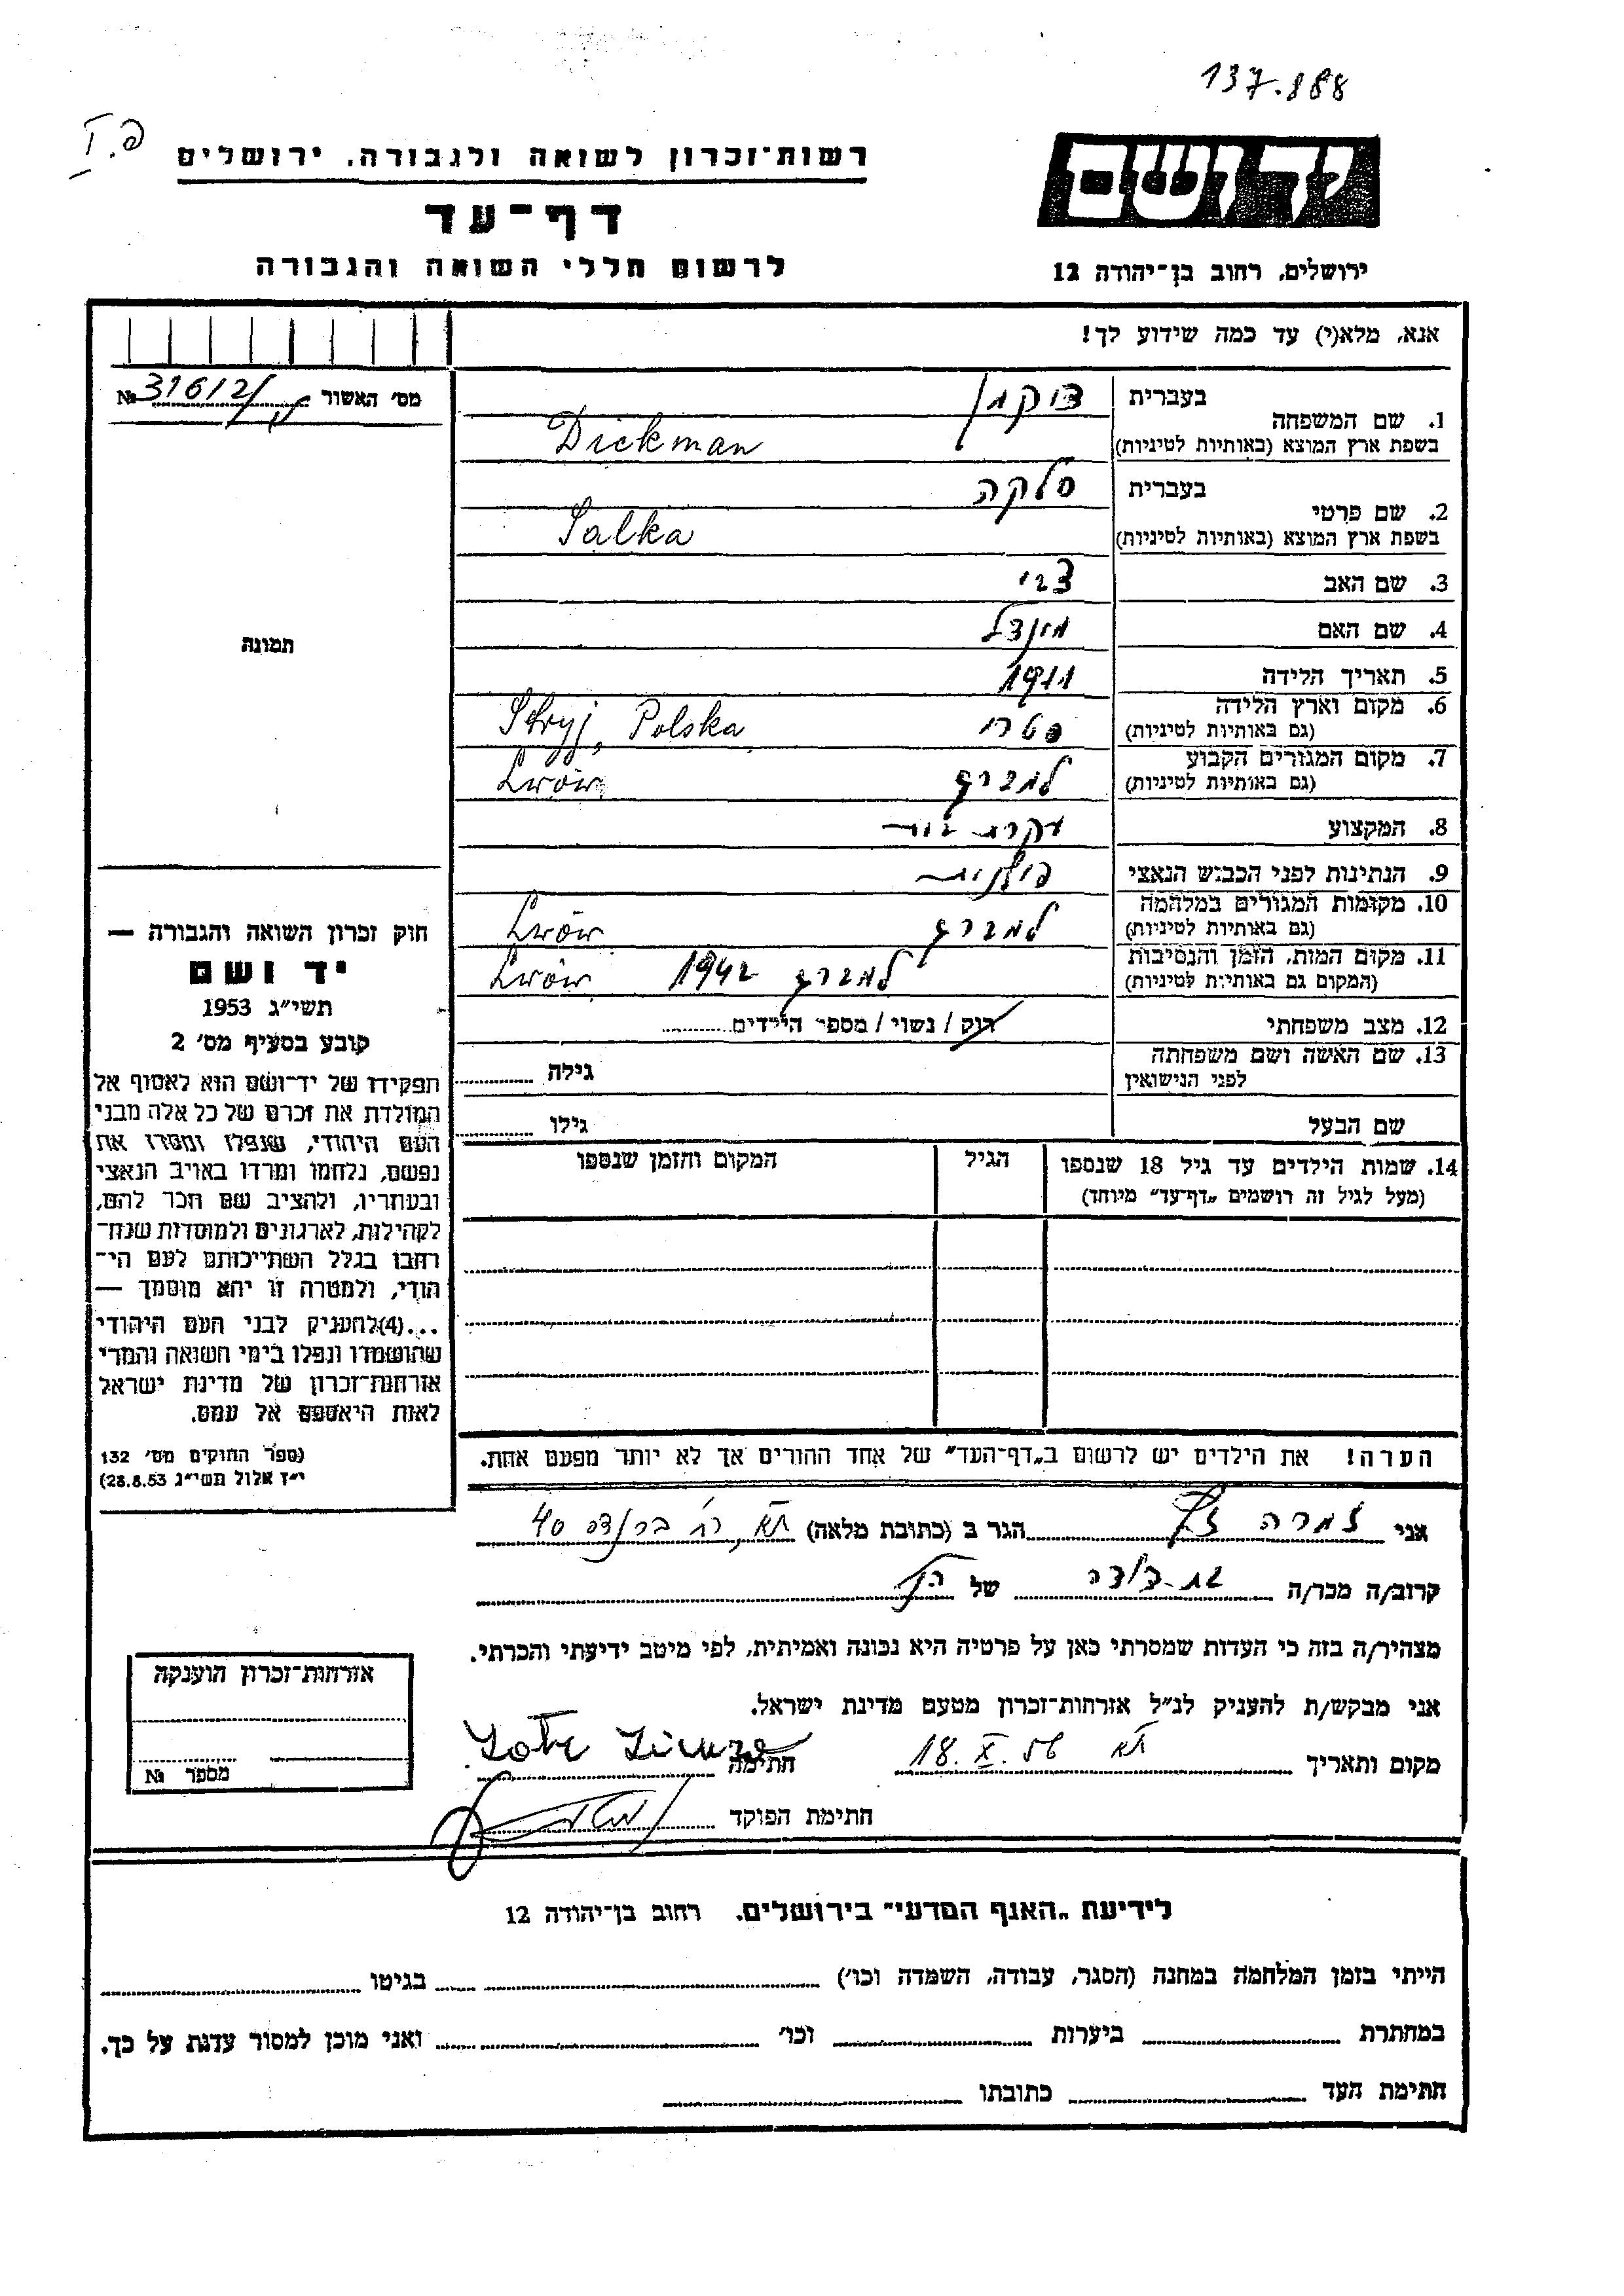 137.888
רשות־זכרון לשואה ולגבורה, ירושלים
דף־עד
לרשום חללי השואה והגבורה
יד ושם
ירושלים, רחוב בן־יהודה 12
אנא, מלא(י) עד כמה שידוע לך!
מס׳ האשור № 31612/
1. שם המשפחה
בעברית דיקמן
בשפת ארץ המוצא (באותיות לטיניות) Dickman
2. שם פרטי
בעברית סלקה
בשפת ארץ המוצא (באותיות לטיניות) Salka
3. שם האב צבי
4. שם האם
5. תאריך הלידה 1911
6. מקום וארץ הלידה
(גם באותיות לטיניות) סטרי Stryj, Polska
7. מקום המגורים הקבוע
(גם באותיות לטיניות) למברג Lwów
8. המקצוע עקרת בית
9. הנתינות לפני הכבוש הנאצי פולנית
10. מקומות המגורים במלחמה
(גם באותיות לטיניות) למברג Lwów
11. מקום המות, הזמן והנסיבות
(המקום גם באותיות לטיניות) למברג 1942 Lwów
12. מצב משפחתי רוק / נשוי / מספר הילדים
13. שם האשה ושם משפחתה
לפני הנישואין גילה
שם הבעל גילו
14. שמות הילדים עד גיל 18 שנספו
(מעל לגיל זה רושמים „דף־עד״ מיוחד)
הגיל
המקום והזמן שנספו
תמונה
חוק זכרון השואה והגבורה —
יד ושם
תשי״ג 1953
קובע בסעיף מס׳ 2
תפקידו של יד־ושם הוא לאסוף אל
המולדת את זכרם של כל אלה מבני
העם היהודי, שנפלו ומסרו את
נפשם, נלחמו ומרדו באויב הנאצי
ובעוזריו, ולהציב שם וזכר להם,
לקהילות, לארגונים ולמוסדות שנח־
רבו בגלל השתייכותם לעם הי־
הודי, ולמטרה זו יהא מוסמך —
...(4) להעניק לבני העם היהודי
שהושמדו ונפלו בימי השואה והמרי
אזרחות־זכרון של מדינת ישראל
לאות היאספם אל עמם.
(ספר החוקים מס׳ 132
י״ז אלול תשי״ג 28.8.53)
הערה! את הילדים יש לרשום ב„דף־העד״ של אחד ההורים אך לא יותר מפעם אחת.
אני הגר ב (כתובת מלאה) ת״א, רח׳ 40
קרוב/ה מכר/ה בת-דודה של הנ״ל
מצהיר/ה בזה כי העדות שמסרתי כאן על פרטיה היא נכונה ואמיתית, לפי מיטב ידיעתי והכרתי.
אני מבקש/ת להעניק לנ״ל אזרחות־זכרון מטעם מדינת ישראל.
מקום ותאריך ת״א 18.X.56 חתימה
חתימת הפוקד
אזרחות־זכרון הוענקה
מספר №
לידיעת „האגף המדעי״ בירושלים, רחוב בן־יהודה 12
הייתי בזמן המלחמה במחנה (הסגר, עבודה, השמדה וכו׳) בגיטו
במחתרת ביערות וכו׳ ואני מוכן למסור עדות על כך.
חתימת העד כתובתו